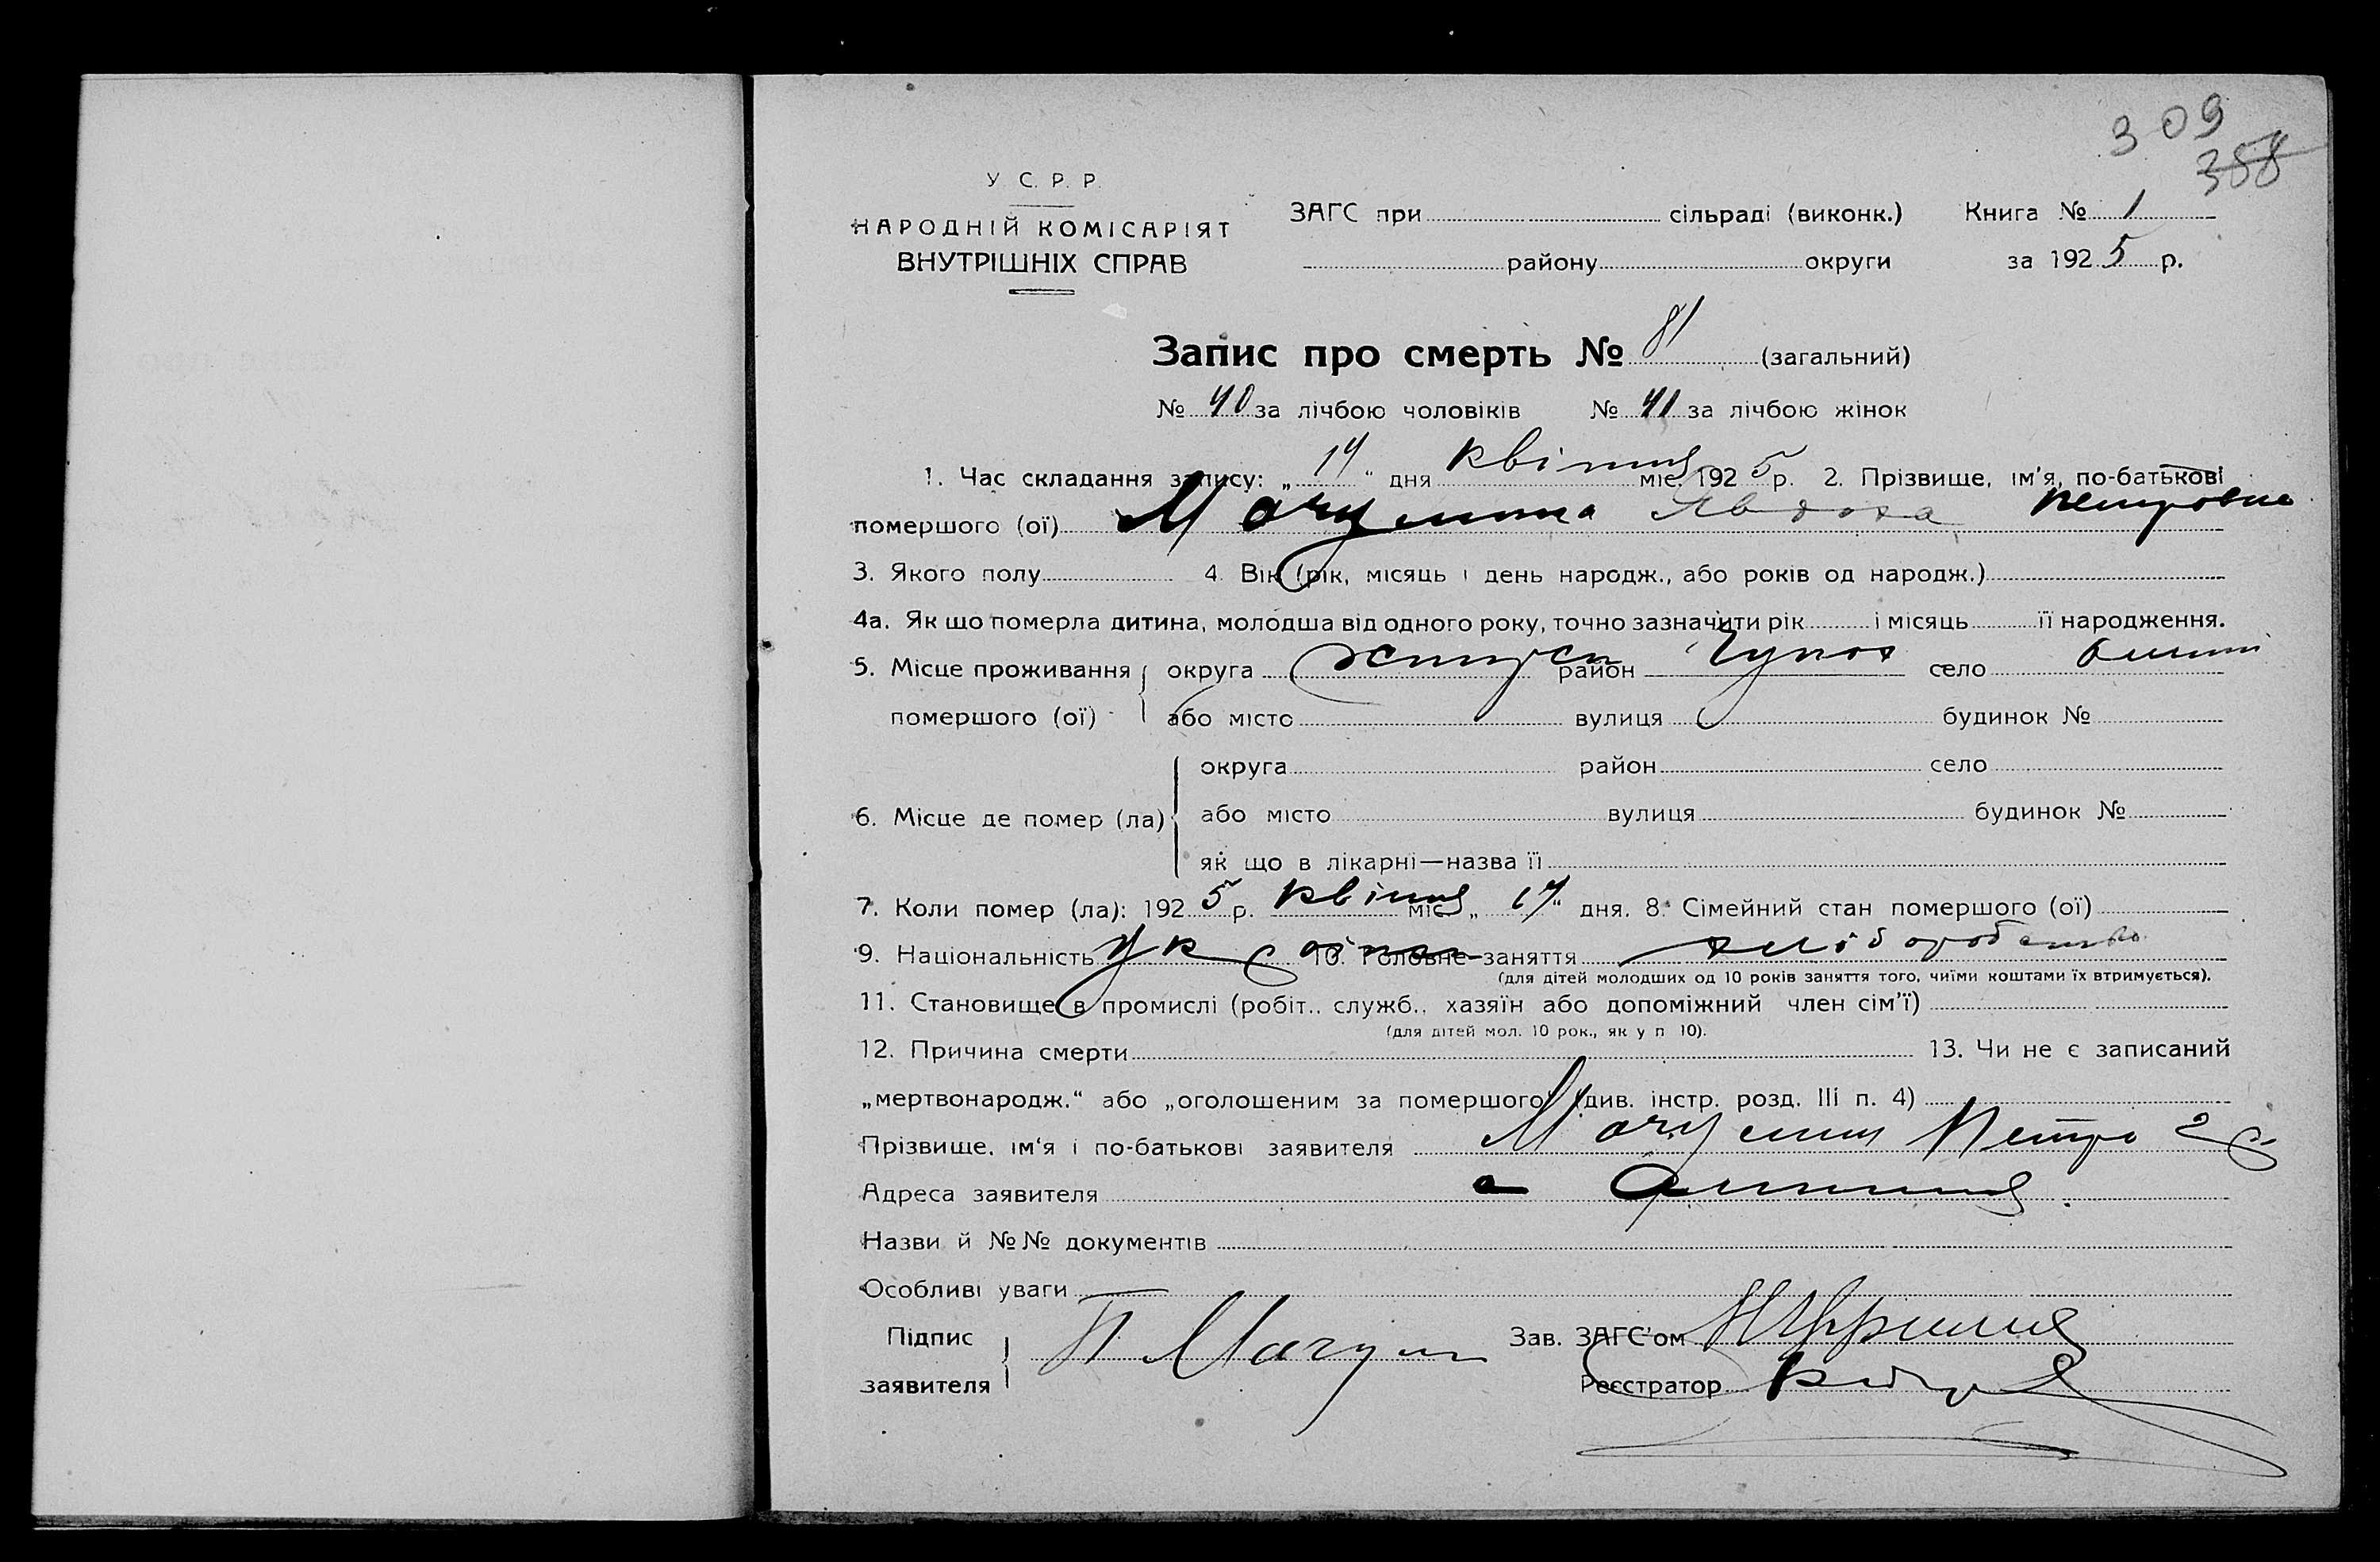 309
358
У С. Р. Р.
НАРОДНІЙ КОМІСАРІЯТ
ВНУТРІШНІХ СПРАВ
ЗАГС при сільраді (виконк.) Книга № 1
району округи за 1925 р.
Запис про смерть № 81 (загальний)
№ 40 за лічбою чоловіків № 41 за лічбою жінок
1. Час складання запису: „ 14 “ дня квітня міс. 1925 р. 2. Прізвище, ім'я, по-батькові
помершого (ої) Явдоха Петровна
3. Якого полу 4. Вік (рік, місяць і день народж., або років од народж.)
4а. Як що померла дитина, молодша від одного року, точно зазначити рік і місяць її народження.
5. Місце проживання округа район село
помершого (ої) або місто вулиця будинок №
округа район село
6. Місце де помер (ла) або місто вулиця будинок №
як що в лікарні—назва її
7. Коли помер (ла): 1925 р. квітня міс. „ “ дня. 8. Сімейний стан помершого (ої)
9. Національність 10. Головне заняття хліборобство
(для дітей молодших од 10 років заняття того, чиїми коштами їх втримується).
11. Становище в промислі (робіт., служб., хазяїн або допоміжний член сім'ї)
(для дітей мол. 10 рок., як у п 10).
12. Причина смерти 13. Чи не є записаний
„мертвонародж.“ або „оголошеним за помершого“ (див. інстр. розд. III п. 4)
Прізвище, ім'я і по-батькові заявителя Петро
Адреса заявителя
Назви й №№ документів
Особливі уваги
Підпис Зав. ЗАГС'ом
заявителя П
Реєстратор